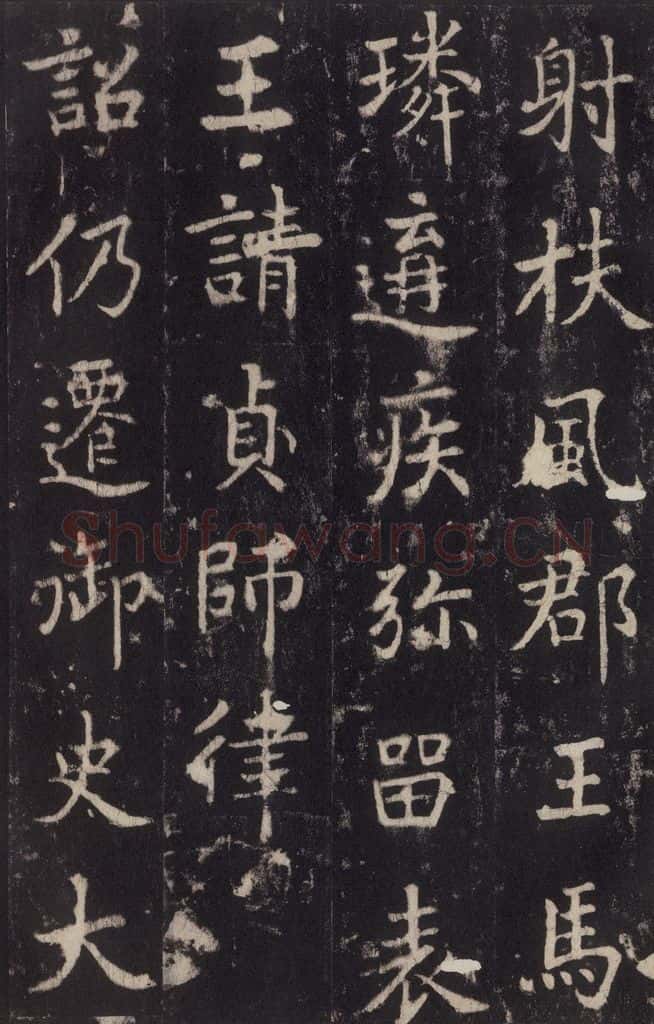 射扶風郡王馬
璘遘疾弥留表
王請貞師律
詔仍遷御史大
Shufawang.CN